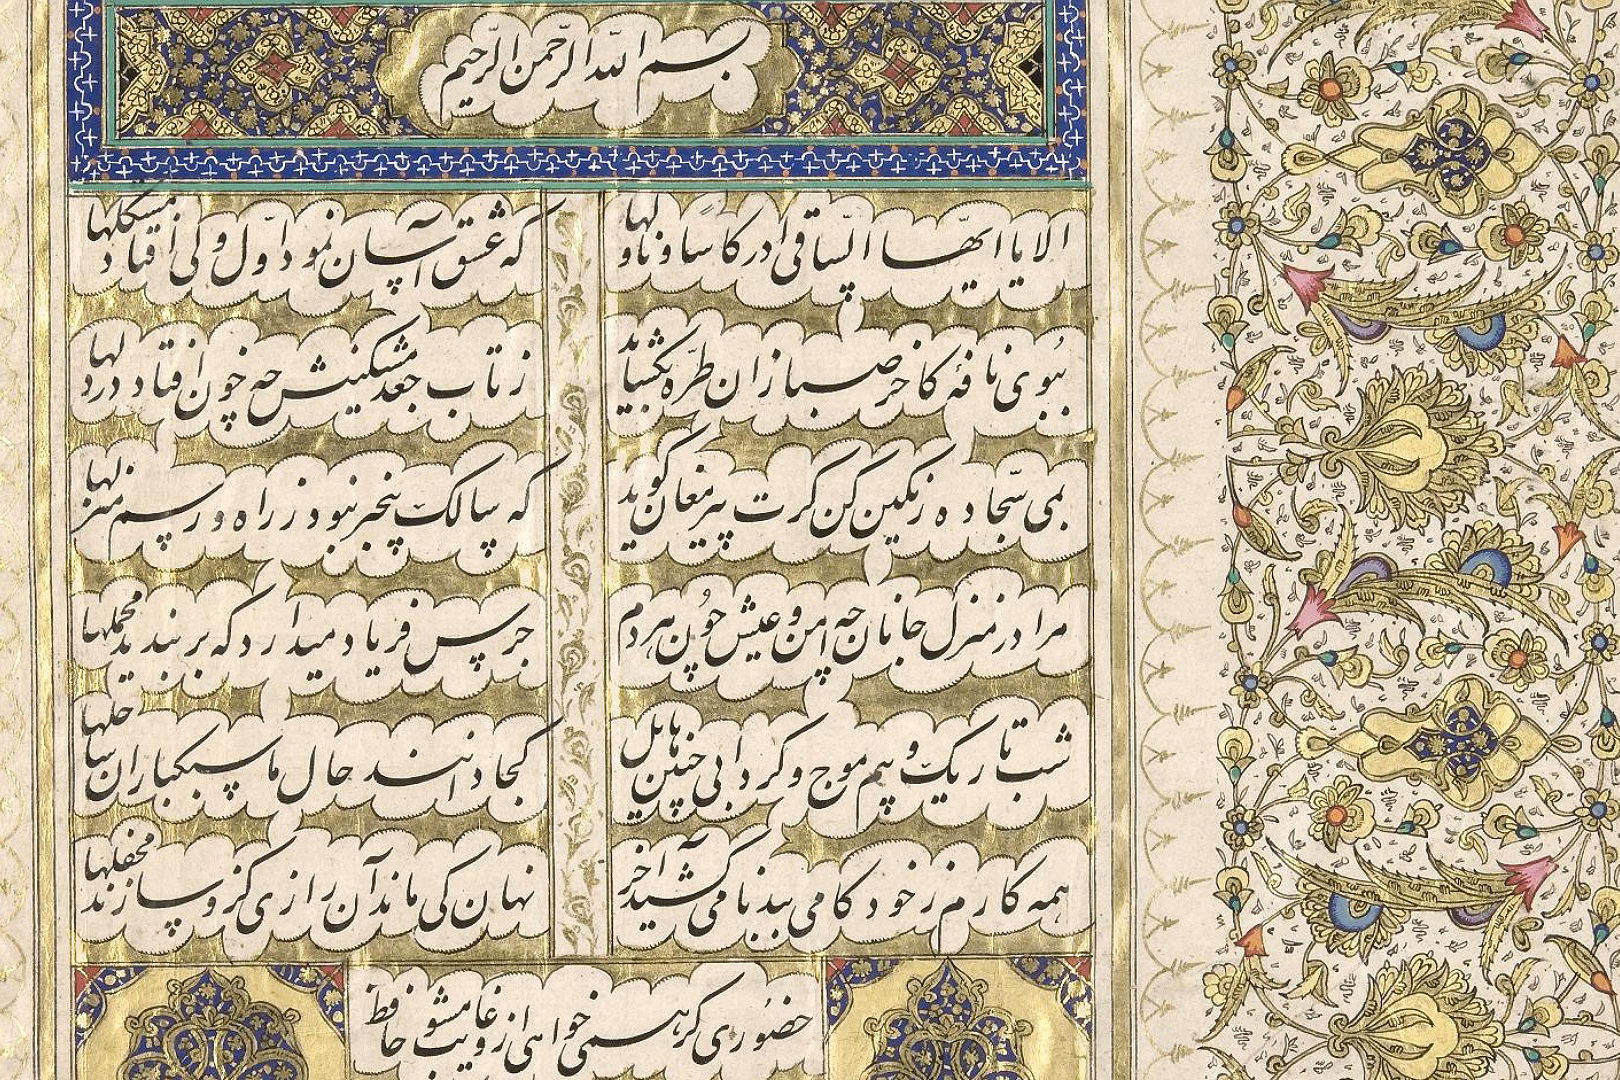 بسم الله الرّحمن الرّحیم
الا یا ایّها السّاقی ادر کاسا و ناولها
که عشق آسان نمود اوّل ولی افتاد مشکلها
ببوی نافهٔ کاخر صبا زان طرّه بکشاید
ز تاب جعد مشکینش چه خون افتاد در دلها
بمی سجّاده رنکین کن کرت پیر مغان کوید
که سالک بیخبر نبود ز راه و رسم منزلها
مرا در منزل جانان چه امن و عیش چون هردم
جرس فریاد میدارد که بربندید محملها
شب تاریک و بیم موج و کردابی چنین هایل
کجا دانند حال ما سبکباران ساحلها
همه کارم ز خود کامی ببدنامی کشید آخر
نهان کی ماند آن رازی کزو سازند محفلها
حضوری کر همی خواهی ازو غایب مشو حافظ